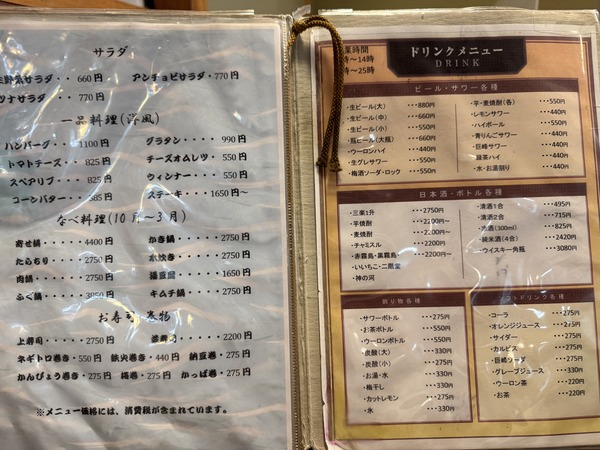 サラダ
サラダ・・ 660円 アンチョビサラダ・770円
ツナサラダ・・ 770円
一品料理(洋風)
ハンバーグ・・・1100円 グラタン・・・・・990円
トマトチーズ・・ 825円 チーズオムレツ・・550円
スペアリブ・・・ 825円 ウィンナー・・・・550円
コーンバター・・・385円 ステーキ・・・1650円～
なべ料理(10月～3月)
寄せ鍋・・・・・4400円 かき鍋・・・・・2750円
たらちり・・・・2750円 水炊き・・・・・2750円
肉鍋・・・・・・2750円 湯豆腐・・・・・1650円
ふぐ鍋・・・・・3850円 キムチ鍋・・・・2750円
お寿司 巻物
上寿司・・・・・2750円 寿司・・・・・2200円
ネギトロ巻き・550円 鉄火巻き・440円 納豆巻・275円
かんぴょう巻き・275円 梅巻・275円 かっぱ巻・275円
※メニュー価格には、消費税が含まれています。
業時間
時～14時
時～25時
ドリンクメニュー
DRINK
ビール・サワー各種
・生ビール(大)・・・880円
・生ビール(中)・・・660円
・生ビール(小)・・・550円
・瓶ビール(大瓶)・・・660円
・ウーロンハイ・・・440円
・生グレサワー・・・550円
・梅酒ソーダ・ロック・・・550円
・芋・麦焼酎(各)・・・550円
・レモンサワー・・・440円
・ハイボール・・・550円
・青りんごサワー・・・440円
・巨峰サワー・・・440円
・緑茶ハイ・・・440円
・水・お湯割り・・・440円
日本酒・ボトル各種
・三楽1升・・・2750円
・芋焼酎・・・2200円～
・麦焼酎・・・2200円～
・チャミスル・・・2200円
・赤霧島・黒霧島・・・2200円～
・いいちこ・二階堂
・神の河
・清酒1合・・・495円
・清酒2合・・・715円
・冷酒(300ml)・・・825円
・純米酒(4合)・・・2420円
・ウイスキー角瓶・・・3080円
割り物各種
・サワーボトル・・・275円
・お茶ボトル・・・550円
・ウーロンボトル・・・550円
・炭酸(大)・・・330円
・炭酸(小)・・・275円
・お湯・水・・・330円
・梅干し・・・330円
・カットレモン・・・275円
・氷・・・330円
ソフトドリンク各種
・コーラ・・・275円
・オレンジジュース・・・275円
・サイダー・・・275円
・カルピス・・・275円
・巨峰ソーダ・・・275円
・グレープジュース・・・330円
・ウーロン茶・・・220円
・お茶・・・220円